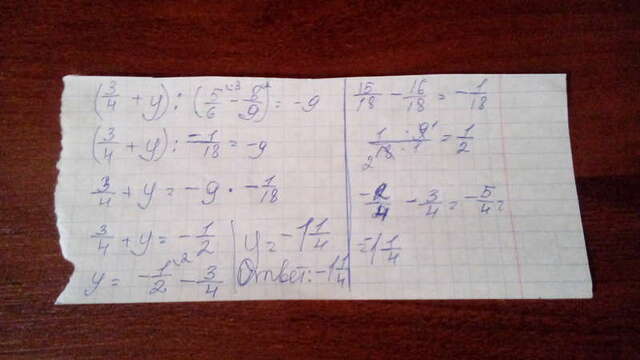 (3/4 + y) : (5/6 ˣ³ - 8/9 ˣ²) = -9
(3/4 + y) : -1/18 = -9
3/4 + y = -9 · -1/18
3/4 + y = -1/2
y = -1/2 ˣ² - 3/4
y = -1 1/4
Ответ: -1 1/4
15/18 - 16/18 = -1/18
1/18 · 9/1 = 1/2
-2/4 - 3/4 = -5/4 =
= -1 1/4